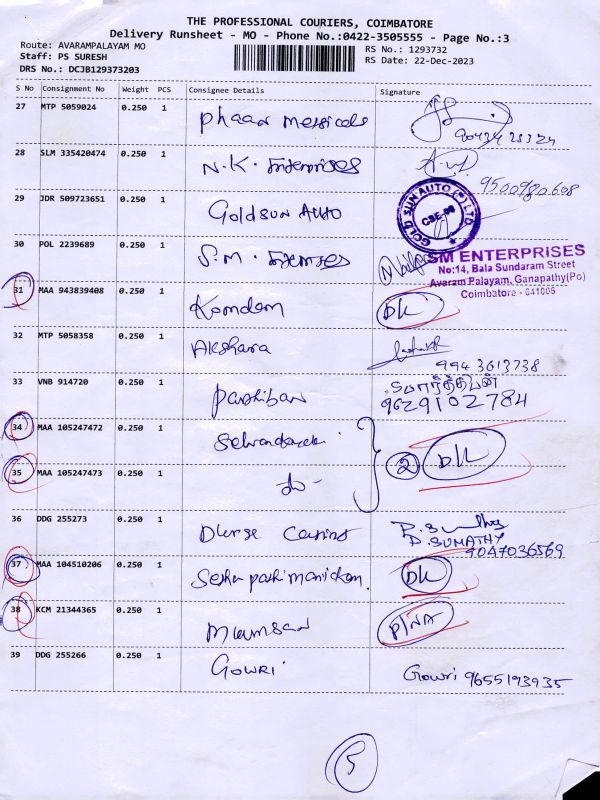 THE PROFESSIONAL COURIERS, COIMBATORE
Delivery Runsheet - MO - Phone No.:0422-3505555 - Page No.:3
Route: AVARAMPALAYAM MO
RS No.: 1293732
Staff: PS SURESH
RS Date: 22-Dec-2023
DRS No.: DCJB129373203
S No Consignment No Weight PCS Consignee Details Signature
27 MTP 5059024 0.250 1 Phaan Medicals
28 SLM 335420474 0.250 1 N.K. Enterprises
9500980608
29 JDR 509723651 0.250 1 Goldsun Auto
GOLD SUN AUTO (P) LTD
CBE-06
30 POL 2239689 0.250 1 S.M. Enterprises
SM ENTERPRISES
No:14, Bala Sundaram Street
Avaram Palayam, Ganapathy(Po)
Coimbatore - 641006
31 MAA 943839408 0.250 1 DL
32 MTP 5058358 0.250 1 Akshara
9943613738
33 VNB 914720 0.250 1 Parthiban
9629102784
34 MAA 105247472 0.250 1
2 D/L
35 MAA 105247473 0.250 1 do -
36 DDG 255273 0.250 1 Durge
D. SUMATHY
9047036569
37 MAA 104510206 0.250 1 DL
38 KCM 21344365 0.250 1 P/NA
39 DDG 255266 0.250 1 Gowri Gowri 9655193935
5